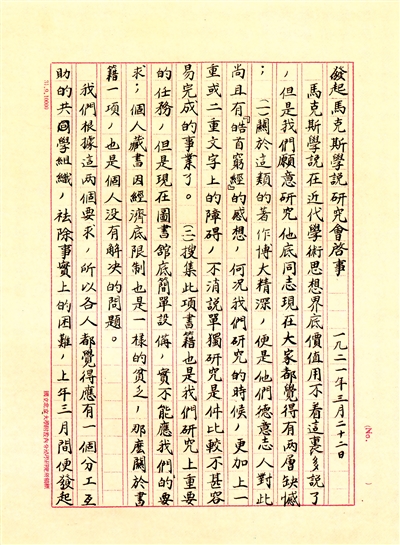 發起馬克斯學説研究會啓事 一九二一年三月二十二日
馬克斯學説在近代學術思想界底價值用不着這裏多説了
，但是我們願意研究他底同志現在大家都覺得有兩層缺憾
；(一)關於這類的著作博大精深，便是他們德意志人對此
尚且有『皓首窮經』的感想，何况我們研究的時候，更加上一
重或二重文字上的障碍，不消説單獨研究是件比較不甚容
易完成的事業了。(二)搜集此項書籍也是我們研究上重要
的任務，但是現在圖書館底簡單設備，實不能應我們的要
求；個人藏書因經濟底限制也是一樣的貧乏，那麽關於書
籍一項，也是個人没有解决的問題。
我們根據這兩個要求，所以各人都覺得應有一個分工互
助的共同學組織，祛除事實上的困難，上年三月間便發起
(No. )